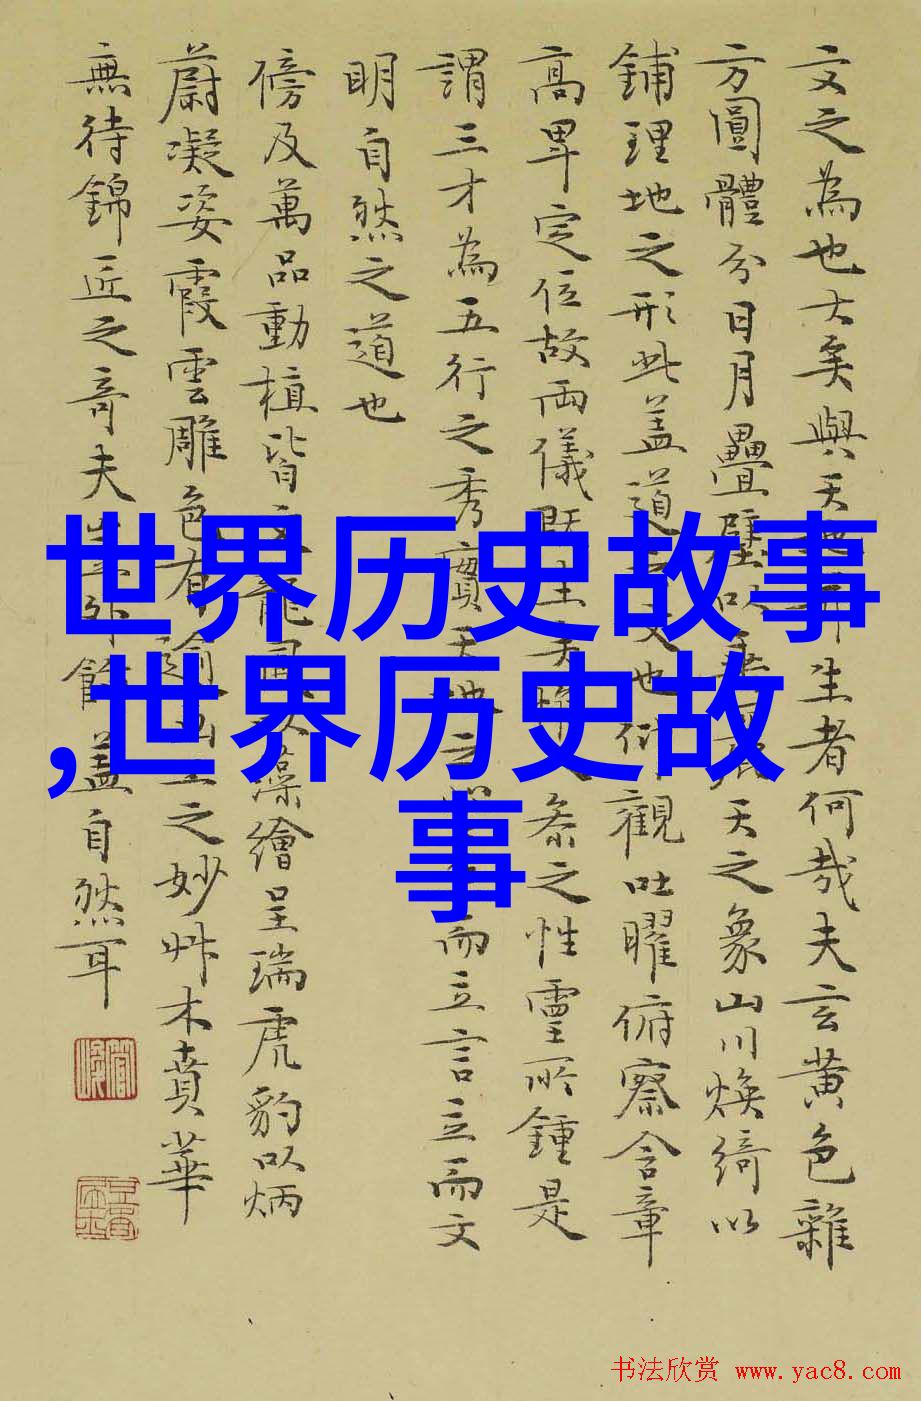 文之為也大矣與天生者何哉夫玄黄色雜
方圓體分日月疊璧以天之象山川煥綺以
鋪理地之形此盖道文也仰觀吐曜俯察含章
高卑定位故兩儀既生参之性靈所鍾是
謂三才為五行之秀實天地之而立言立而文
明自然之道也
傍及萬品動植皆文龍鳳以藻繪呈瑞虎豹以炳
蔚凝姿霞雲雕色有工之妙艸木賁華
無待錦匠之奇夫外飾盖自然耳
世界历史故事
,世界历史故
事
书法欣赏 www.yac8.com